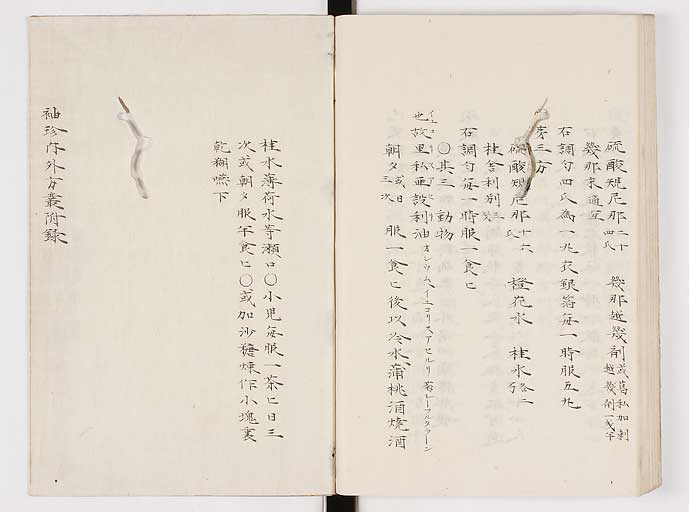 硫酸規尼那二十四氏 幾那越幾剤或葛私加剌越幾剤一戔半
幾那末適宜
右調勻四氏為一丸衣銀箔毎一時服五丸
第三方
硫酸規尼那十六氏 橙花水 桂水各二
桂舎利別
右調勻毎一時服一食匕
○其三 動物
也故里私亜設利油オレウム、イエコリスアセルリ
朝夕或日三次 服一食匕後以冷水蒲桃酒焼酒
桂水薄荷水等瀬口○小児毎服一茶匕日三
次或朝夕服半食匕○或加沙糖煉作小塊裏
乾糊嚥下
袖珍内外方叢附録